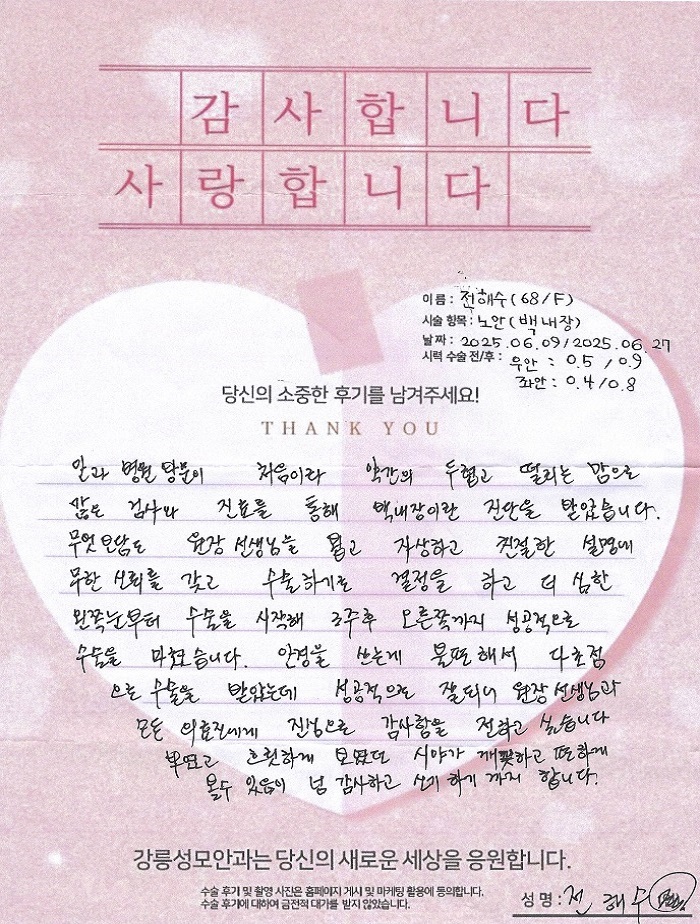 감사합니다
사랑합니다
이름 : 전해수 (68/F)
시술 항목 : 노안 (백내장)
날짜 : 2025.06.09/2025.06.27
시력 수술 전/후 : 우안 : 0.5 / 0.9
좌안 : 0.4 / 0.8
당신의 소중한 후기를 남겨주세요!
THANK YOU
안과 병원 방문이 처음이라 약간의 두렵고 떨리는 맘으로
많은 검사와 진료를 통해 백내장이란 진단을 받았습니다.
무엇보담도 원장 선생님을 뵙고 자상하고 친절한 설명에
무한 신뢰를 갖고 수술하기로 결정을 하고 더 심한
왼쪽눈부터 수술을 시작해 2주후 오른쪽까지 성공적으로
수술을 마쳤습니다. 안경을 쓰는게 불편해서 다초점
으로 수술을 받았는데 성공적으로 잘되니 원장 선생님과
모든 의료진에게 진심으로 감사함을 전하고 싶습니다
뿌옇고 흐릿하게 보였던 시야가 깨끗하고 편하게
볼수 있음이 넘 감사하고 신기 하기 까지 합니다.
강릉성모안과는 당신의 새로운 세상을 응원합니다.
수술 후기 및 촬영 사진은 홈페이지 게시 및 마케팅 활용에 동의합니다.
수술 후기에 대하여 금전적 대가를 받지 않았습니다.
성명 : 전 해 수